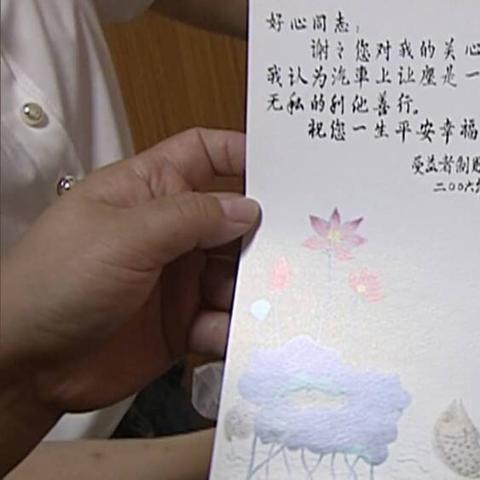 好心同志：
谢々您对我的关心
我认为汽車上让座是一
无私的利他善行。
祝您一生平安幸福
受益者制
二〇〇六